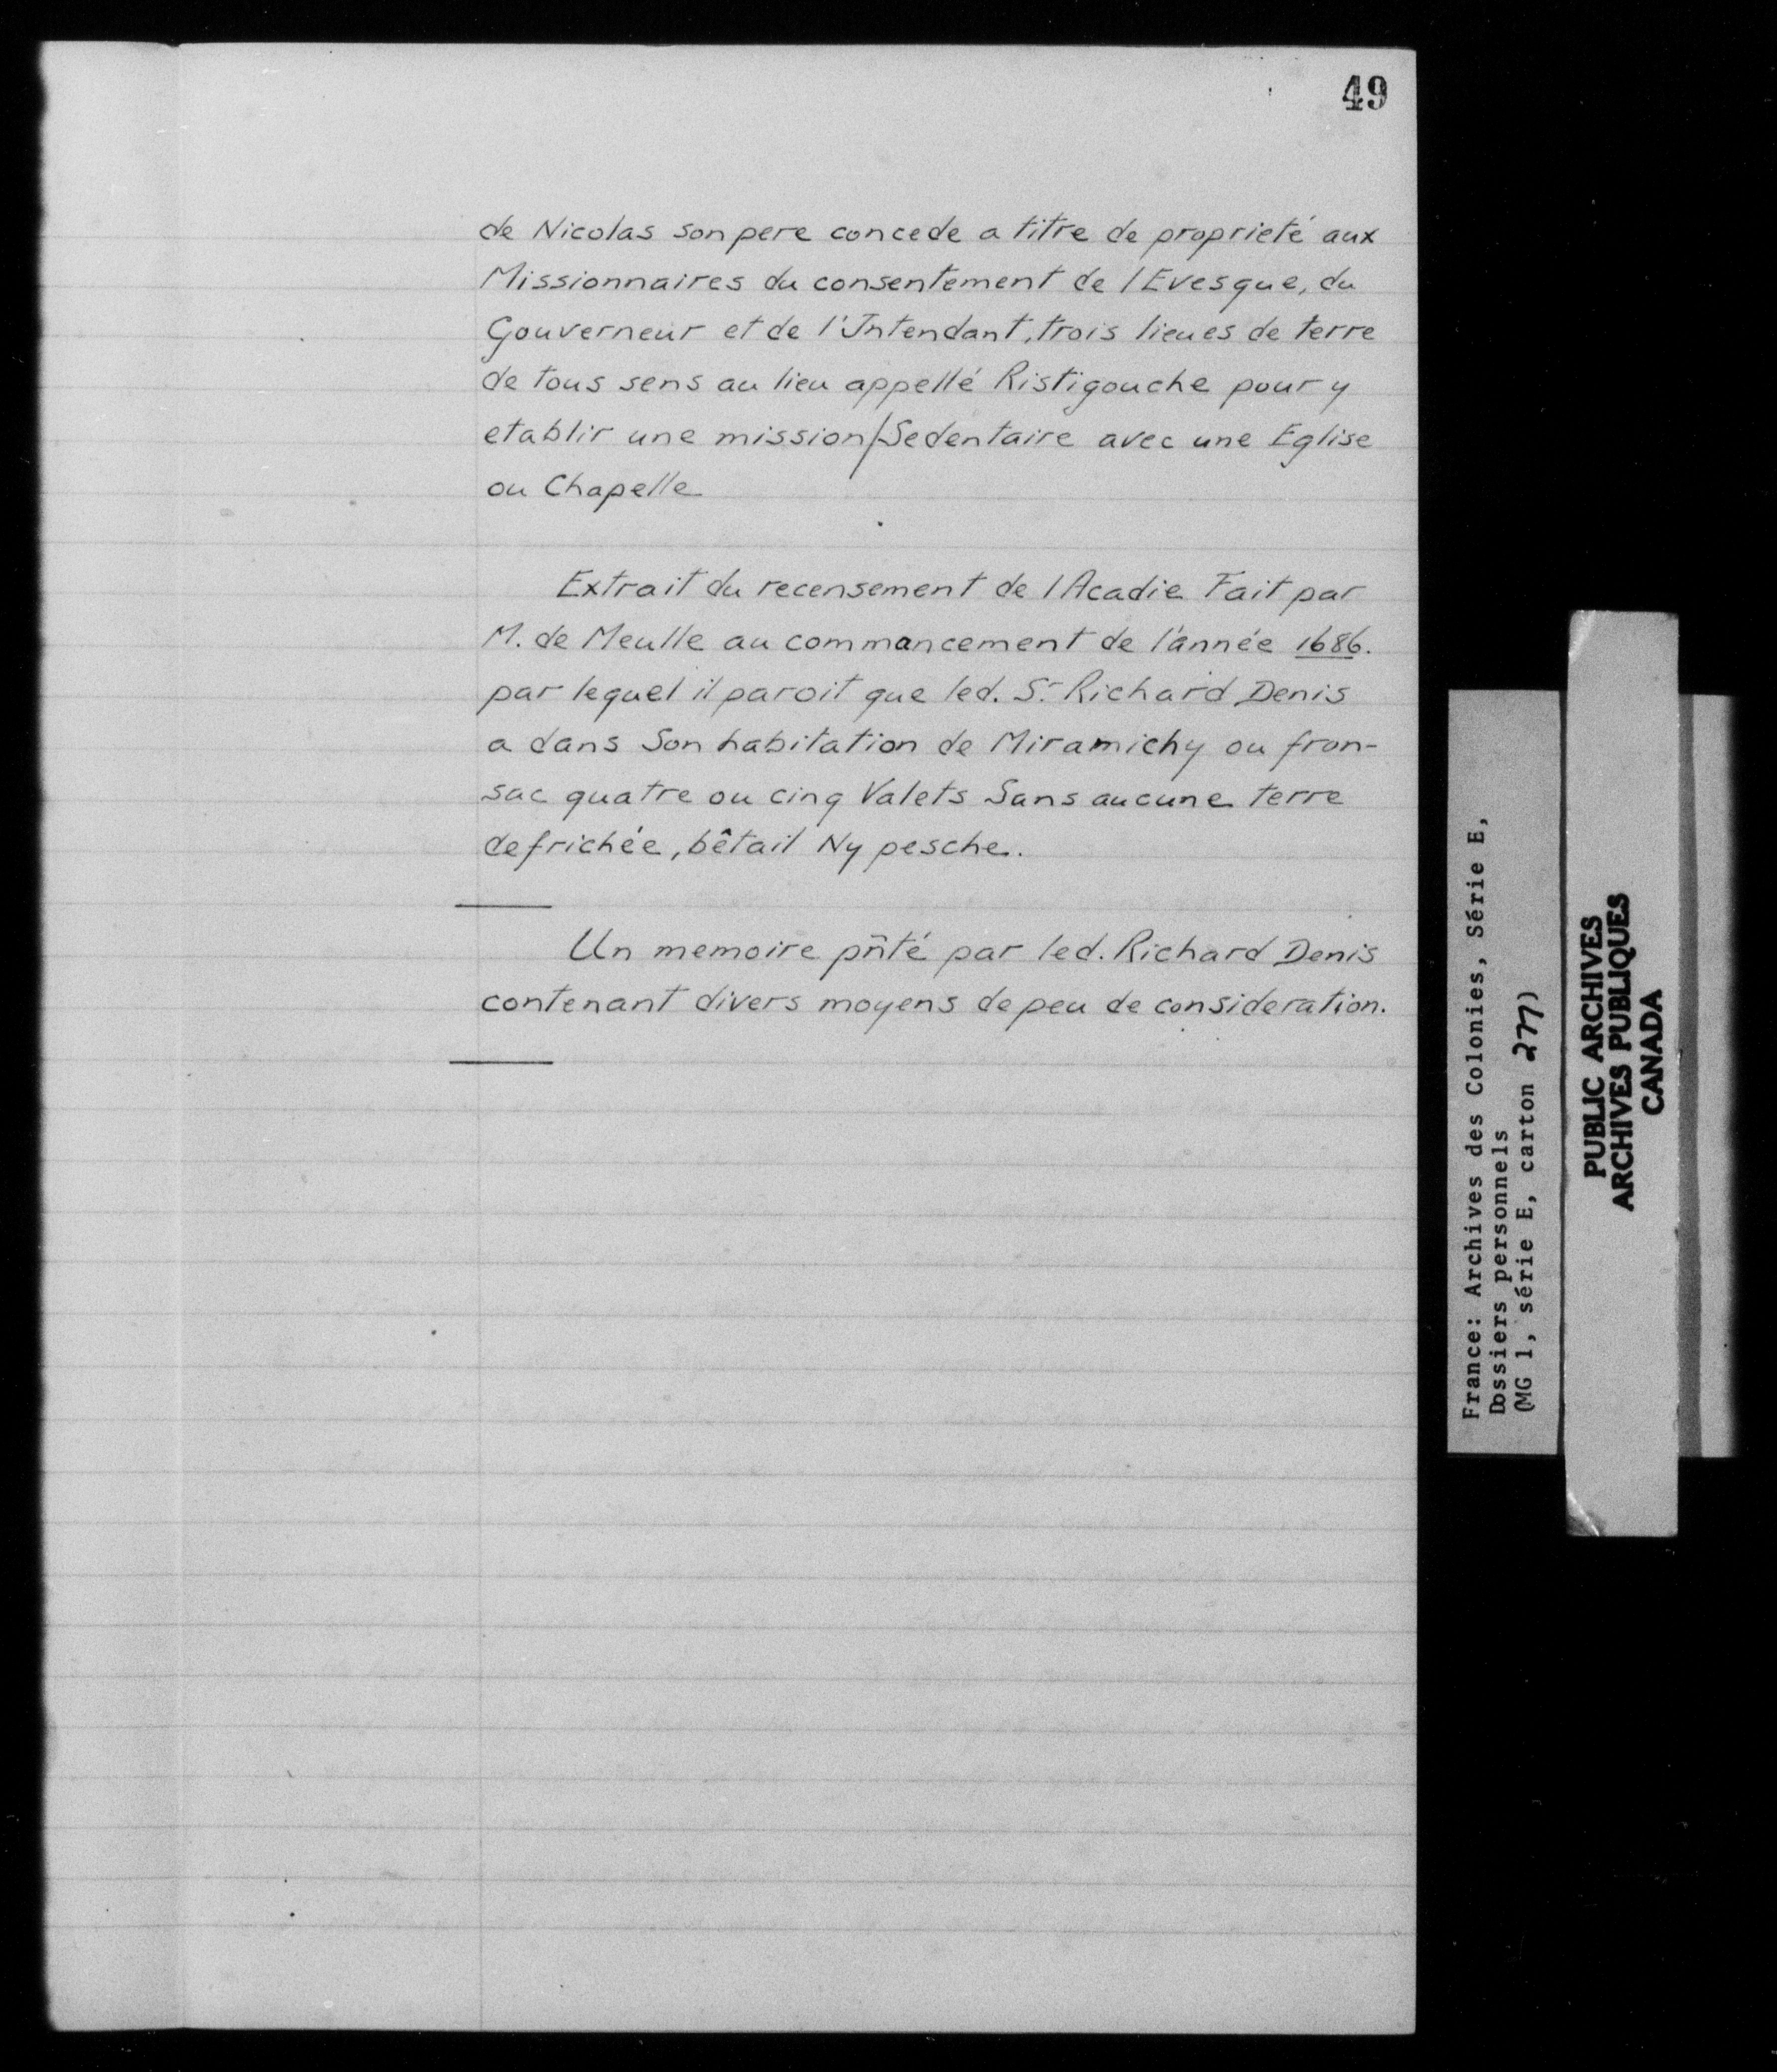 49
de Nicolas son pere concede a titre de proprieté aux
Missionnaires du consentement de l Evesque, du
Gouverneur et de l'Intendant, trois lieues de terre
de tous sens au lieu appellé Ristigouche pour y
etablir une mission/Sedentaire avec une Eglise
ou Chapelle
Extrait du recensement de l Acadie Fait par
M. de Meulle au commancement de l'année 1686.
par lequel il paroit que led. Sr Richard Denis
a dans Son habitation de Miramichy ou fron-
sac quatre ou cinq Valets Sans aucune terre
defrichée, bêtail Ny pesche.
Un memoire pñté par led. Richard Denis
contenant divers moyens de peu de consideration.
France: Archives des Colonies, Série E,
Dossiers personnels
(MG 1, série E, carton 277)
PUBLIC ARCHIVES
ARCHIVES PUBLIQUES
CANADA